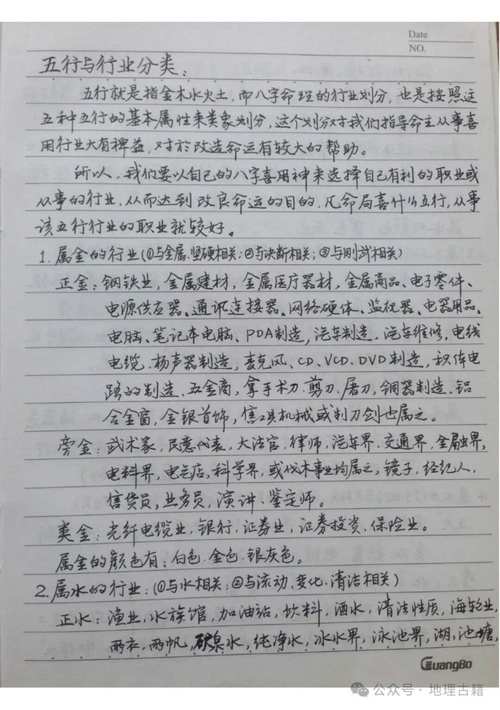 Date
NO.
五行与行业分类：
五行就是指金木水火土，而八字命理的行业划分，也是按照这
五种五行的基本属性来类象划分，这个划分对我们指导命主从事喜
用行业大有裨益，对於改造命运有较大的帮助。
所以，我们要以自己的八字喜用神来选择自己有利的职业或
从事的行业，从而达到改良命运的目的，凡命局喜什么五行，从事
该五行行业的职业就较好。
1. 属金的行业（①与金属，坚硬相关；②与决断相关；③与刚武相关）
正金：钢铁业，金属建材，金属医疗器材，金属商品、电子零件、
电源供应器、通讯连接器、网络硬体、监视器、电器用品、
电脑、笔记本电脑、PDA制造，汽车制造，汽车维修，电线
电缆，扬声器制造，麦克风、CD、VCD、DVD制造，积体电
路的制造，五金商，拿手术刀，剪刀，屠刀，铜器制造，铝
合金窗，金银首饰，模具机械或刺刀剑也属之。
旁金：武术家，民意代表，大法官，律师，汽车界，交通界，金融界，
电料界，电气店，科学界，或伐木事业均属之，镜子，经纪人，
信贷员，业务员，演讲，鉴定师。
类金：光纤电缆业，银行，证券业，证券投资，保险业。
属金的颜色有：白色，金色，银灰色。
2. 属水的行业：（①与水相关；②与流动、变化、清洁相关）
正水：渔业，水族馆，加油站，饮料，酒水，清洁性质，海轮业，
雨衣，雨帆，矿泉水，纯净水，冰水界，泳池界，湖，池塘，
GuangBo
公众号·地理古籍